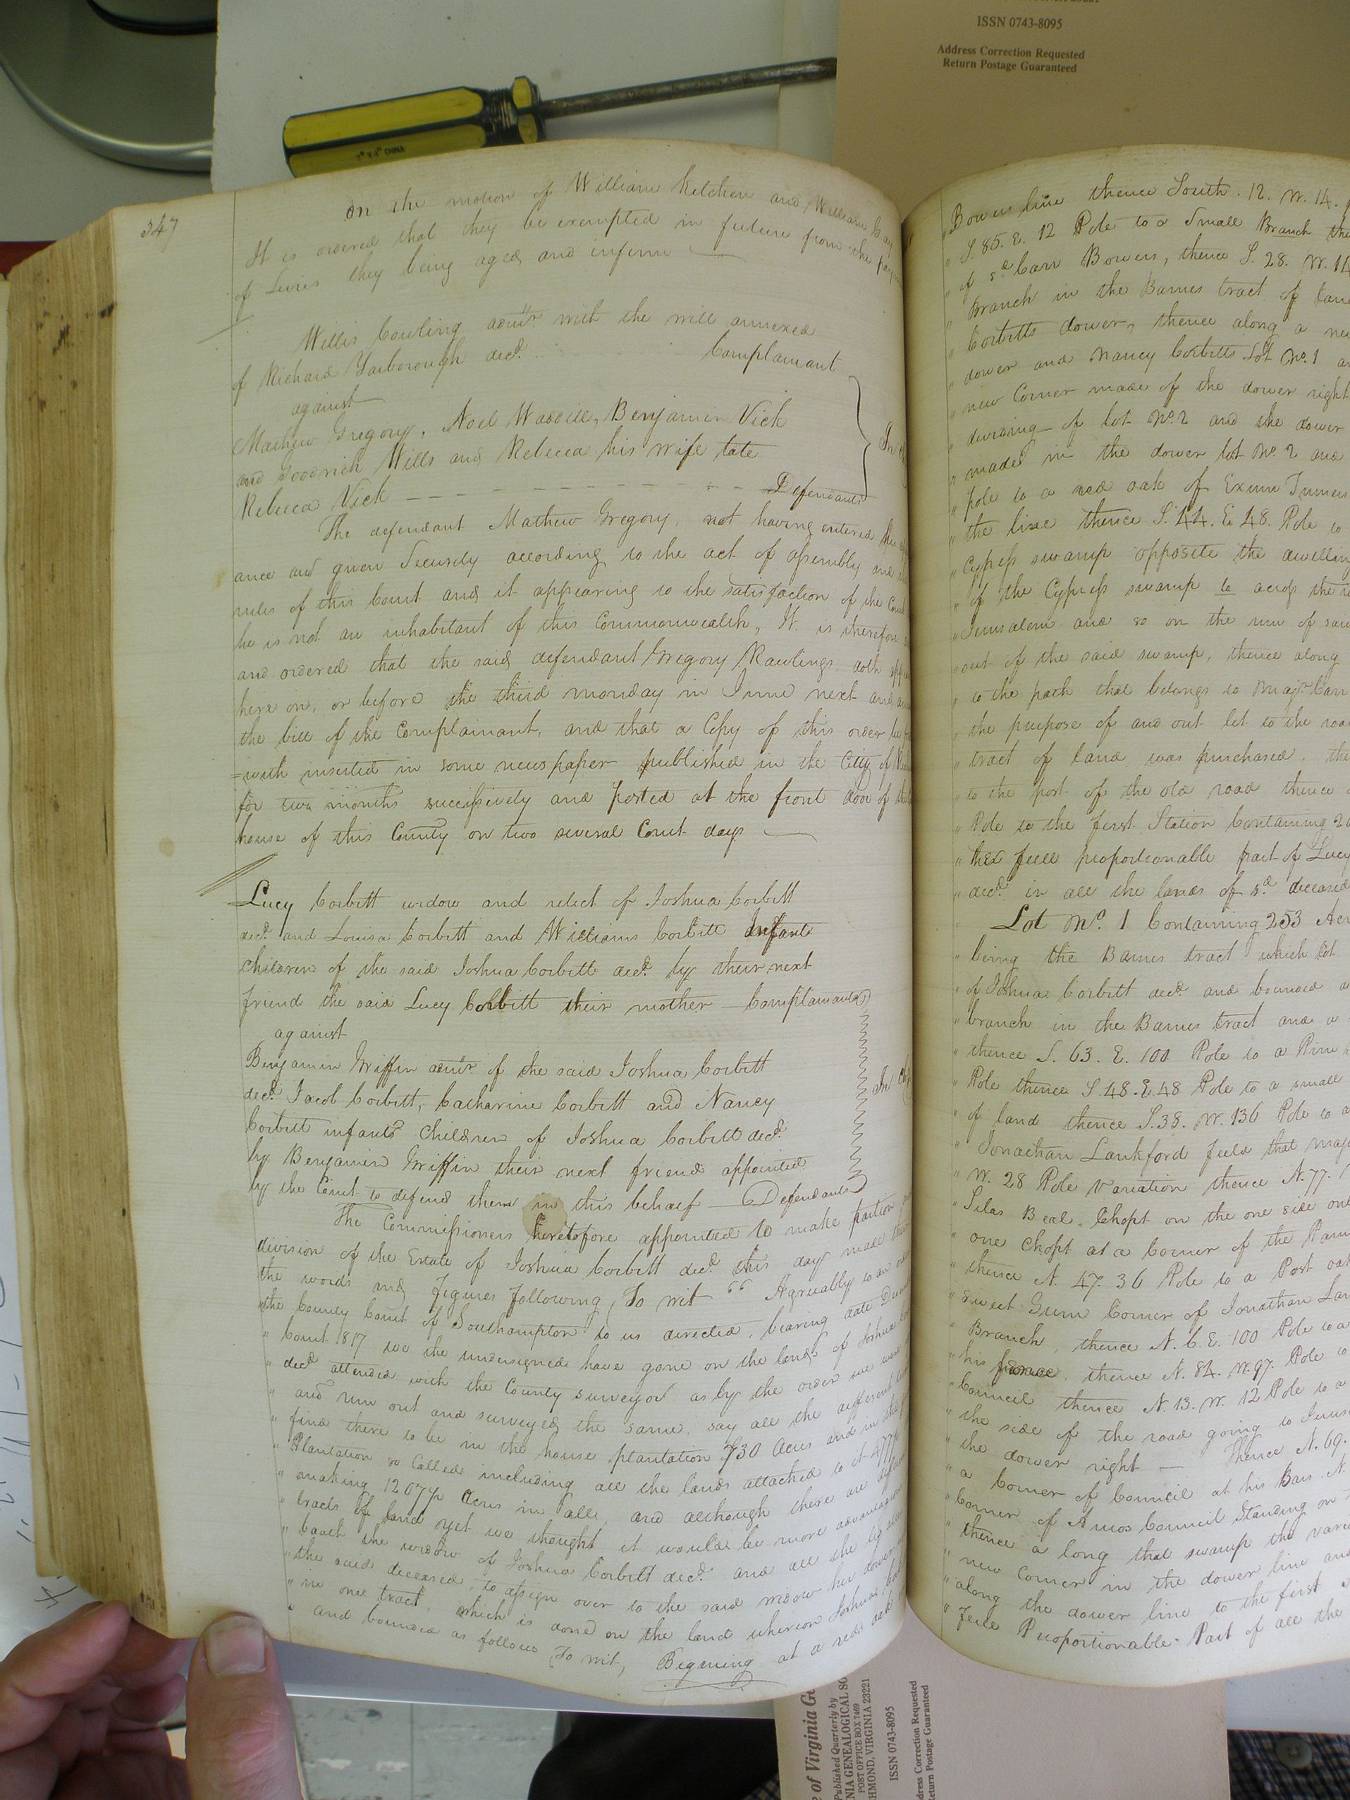 ISSN 0743-8095
Address Correction Requested
Return Postage Guaranteed
347
On the motion of William Kitchen and William
It is ordered that they be exempted in future from the
of Levies they being aged and infirm
Willis Cowling admr with the will annexed
of Richard Yarborough decd. Complainant
against
Mathew Gregory, Noel Waddill, Benjamin Vick
and Goodrich Wills and Rebecca his wife late
Rebecca Vick Defendants
The defendant Mathew Gregory, not having entered his
ance and given Security according to the act of assembly and
rules of this Court and it appearing to the satisfaction of the Court
he is not an inhabitant of this Commonwealth, It is therefore
and ordered that the said defendant Gregory Rawlings doth
here on, or before the third monday in June next and
the bill of the Complainant, and that a Copy of this order be
=with inserted in some newspaper published in the City of
for two months successively and posted at the front door of the
house of this County on two several Court days
Lucy Corbitt widow and relict of Joshua Corbitt
decd. and Louisa Corbitt and Williams Corbitt Infant
children of the said Joshua Corbitt decd. by their next
friend the said Lucy Corbitt their mother Complainants
against
Benjamin Griffin admr of the said Joshua Corbitt
decd. Jacob Corbitt, Catharine Corbitt and Nancy
Corbitt infants children of Joshua Corbitt decd.
by Benjamin Griffin their next friend appointed
by the Court to defend them in this behalf Defendants
The Commissioners heretofore appointed to make partion
division of the Estate of Joshua Corbitt decd. this day made
the words and figures following, To wit " Agreeably to an
the County Court of Southampton to us directed, bearing date
" Court 1817 we the undersigned have gone on the lands of Joshua
decd. attended with the County surveyor as by the order we were
" and run out and surveyed the same, say all the different
" find there to be in the house plantation 730 Acres and in the
" Plantation so Called including all the lands attached to it 477½
" making 1207½ Acres in all, and although there are
" tracts of land yet we thought it would be more advantageous
" the widow of Joshua Corbitt decd. and all the
" the said deceased, to assign over to the said widow her dower
" in one tract, which is done on the land whereon Joshua
" and bounded as follows To wit, Begining at a red oak
Bowers line thence South. 12. W. 14.
" S. 85. E. 12 Pole to a Small Branch the
" of sd. Carr Bowers, thence S. 28. W. 114
" Branch in the Barnes tract of land
" Corbitts dower, thence along a new
" dower and Nancy Corbitts Lot No. 1
" new Corner made of the dower right
" dividing of lot No. 2 and the dower
" made in the dower lot No. 2 and
" pole to a red oak of Exum
" the line thence S. 44. E. 48. Pole to
" Cypress swamp opposite the dwelling
" of the Cypress swamp to across the
" Jerusalem and so on the run of said
" out of the said swamp, thence along
" to the path that belongs to Majr. Carr
" the purpose of and out let to the road
" tract of land was purchased, the
" to the post of the old road thence
" Pole to the first Station Containing
" her full proportionable part of Lucy
" decd. in all the lands of sd. deceased
Lot No. 1 Containing 253 Acres
" being the Barnes tract which lot
" of Joshua Corbitt decd. and bounded
" branch in the Barnes tract and a
" thence S. 63. E. 100 Pole to a Pine
" Pole thence S. 48. E. 48 Pole to a small
" of land thence S. 38. W. 136 Pole to a
" Jonathan Lankford
" W. 28 Pole variation thence N. 77.
" Silas Beal. Chopt on the one side one
" one Chopt at a Corner of the
" thence N. 47. 36 Pole to a Post oak
" sweet Gum Corner of Jonathan
" Branch, thence N. 6. E. 100 Pole to a
" his thence N. 84. W. 97. Pole to
" Council thence N. 13. W. 12 Pole to a
" the side of the road going to
" the dower right Thence N. 69.
" a Corner of Council at his Bars. N.
" Corner of Amos Council Standing on
" thence a long that swamp the
" new Corner in the dower line and
" along the dower line to the first
" full Proportionable Part of all the
of Virginia
Published Quarterly by
GENEALOGICAL
POST OFFICE BOX 7469
VIRGINIA 23221
ISSN 0743-8095
Address Correction Requested
Return Postage Guaranteed